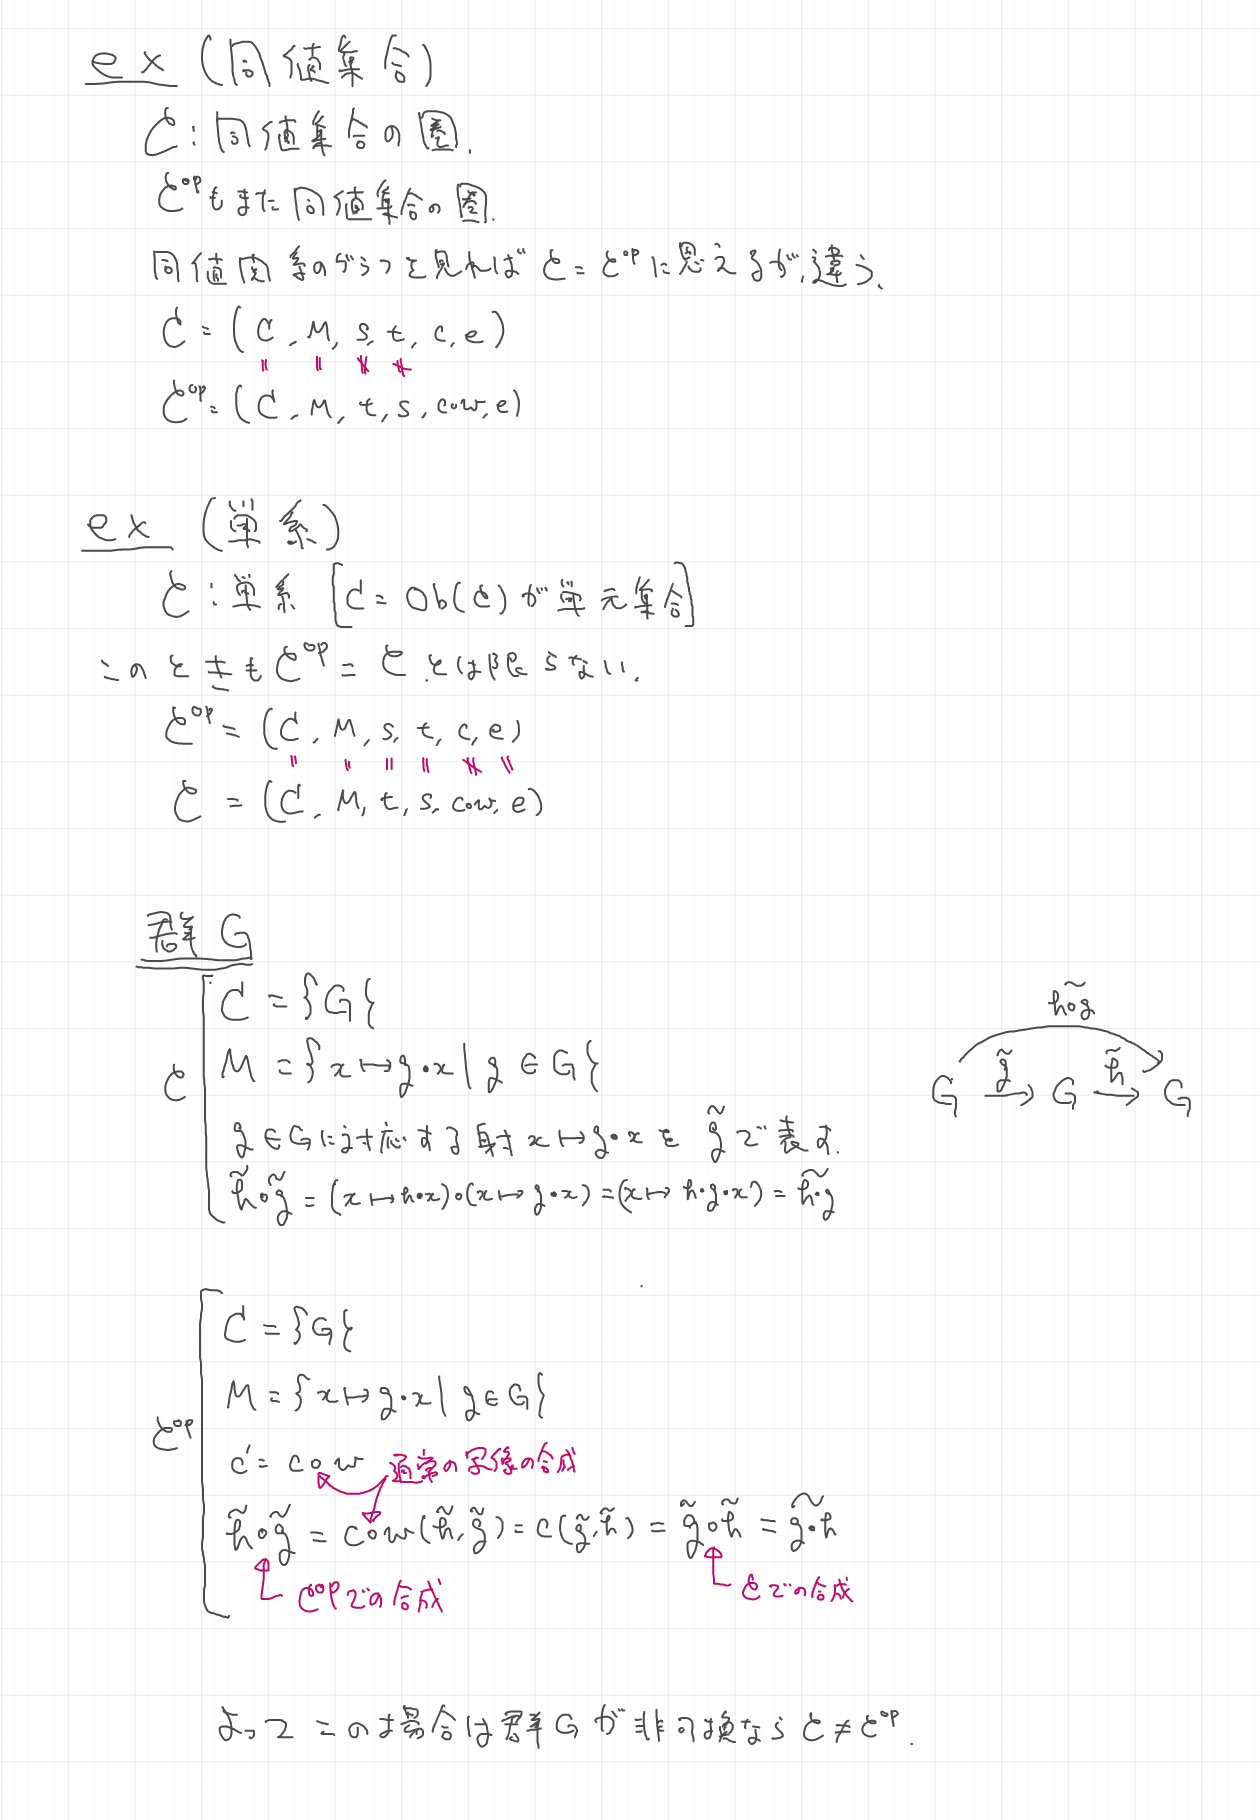 ex (同値集合)
𝒞 : 同値集合の圏.
𝒞ᵒᵖもまた同値集合の圏.
同値関係のグラフを見れば 𝒞 = 𝒞ᵒᵖに思えるが,違う.
𝒞 = (C, M, s, t, c, e)
= = ≠ ≠
𝒞ᵒᵖ = (C, M, t, s, c∘w, e)
ex (単系)
𝒞 : 単系 [C = Ob(𝒞) が単元集合]
このときも 𝒞ᵒᵖ = 𝒞 とは限らない.
𝒞ᵒᵖ = (C, M, s, t, c, e)
= = = = ≠ =
𝒞 = (C, M, t, s, c∘w, e)
群 G
𝒞
C = {G}
M = {x ↦ g・x | g ∈ G}
g ∈ G に対応する射 x ↦ g・x を g̃ で表す.
h̃∘g̃ = (x ↦ h・x)∘(x ↦ g・x) = (x ↦ h・g・x) = \widetilde{h・g}
\widetilde{h∘g}
G →(g̃) G →(h̃) G
𝒞ᵒᵖ
C = {G}
M = {x ↦ g・x | g ∈ G}
c' = c∘w 通常の写像の合成
h̃∘g̃ = c∘w(h̃, g̃) = c(g̃, h̃) = g̃∘h̃ = \widetilde{g・h}
𝒞ᵒᵖでの合成 𝒞での合成
よって この場合は群 G が非可換なら 𝒞 ≠ 𝒞ᵒᵖ.